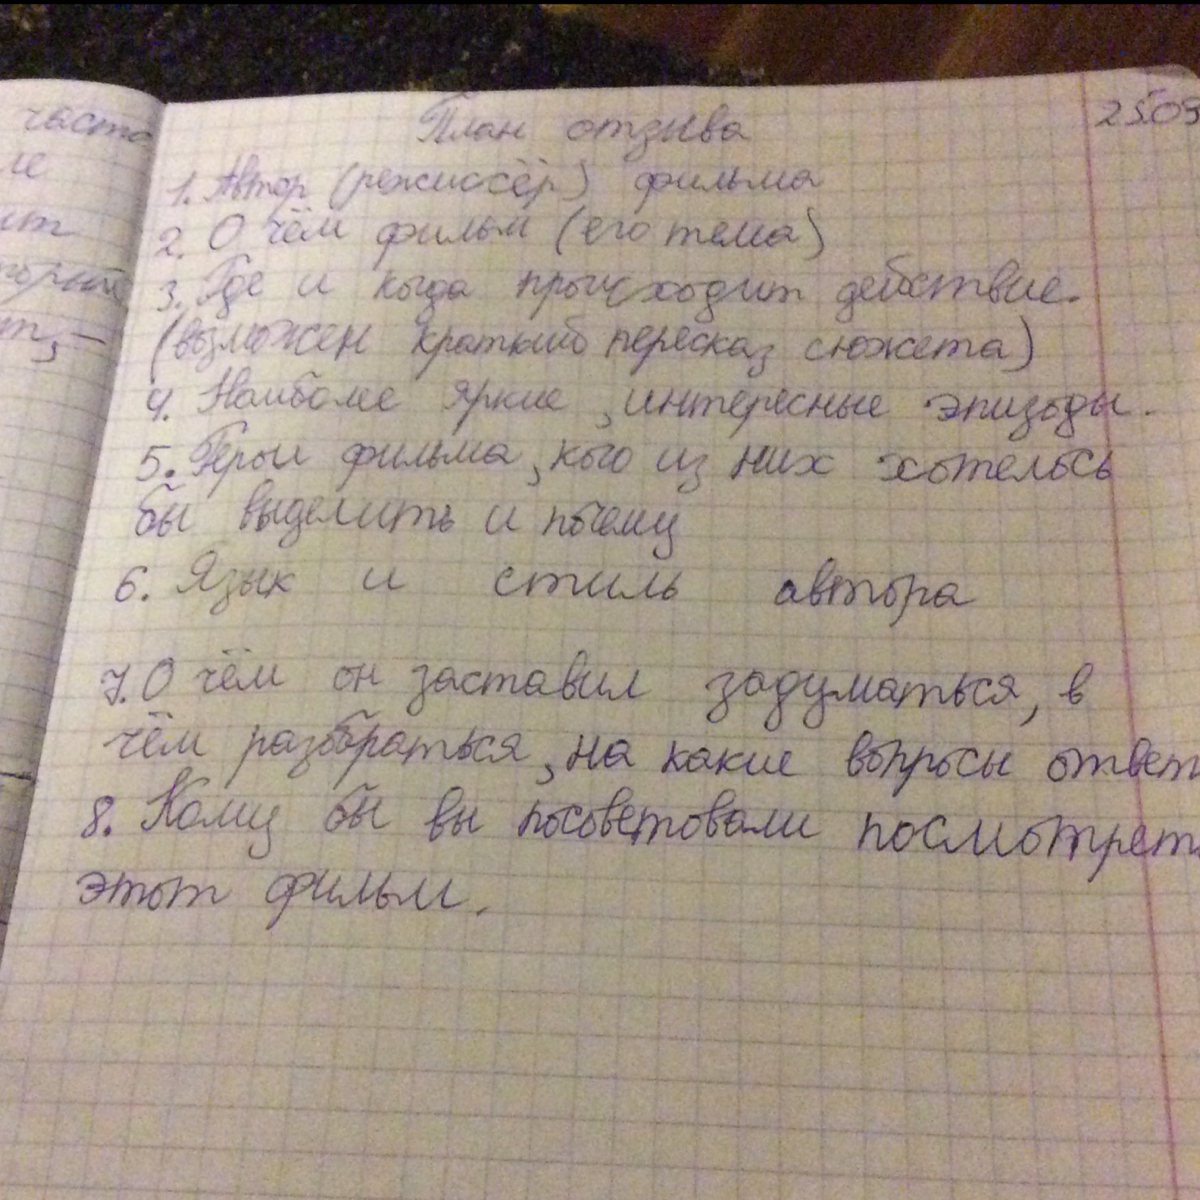 часто
ле
ит
План отзыва
25.09
1. Автор (режиссёр) фильма
2. О чём фильм (его тема)
3. Где и когда происходит действие.
(возможен краткий пересказ сюжета)
4. Наиболее яркие, интересные эпизоды.
5. Герои фильма, кого из них хотелось
бы выделить и почему
6. Язык и стиль автора
7. О чём он заставил задуматься, в
чём разобраться, на какие вопросы ответ
8. Кому бы вы посоветовали посмотрет
этот фильм.